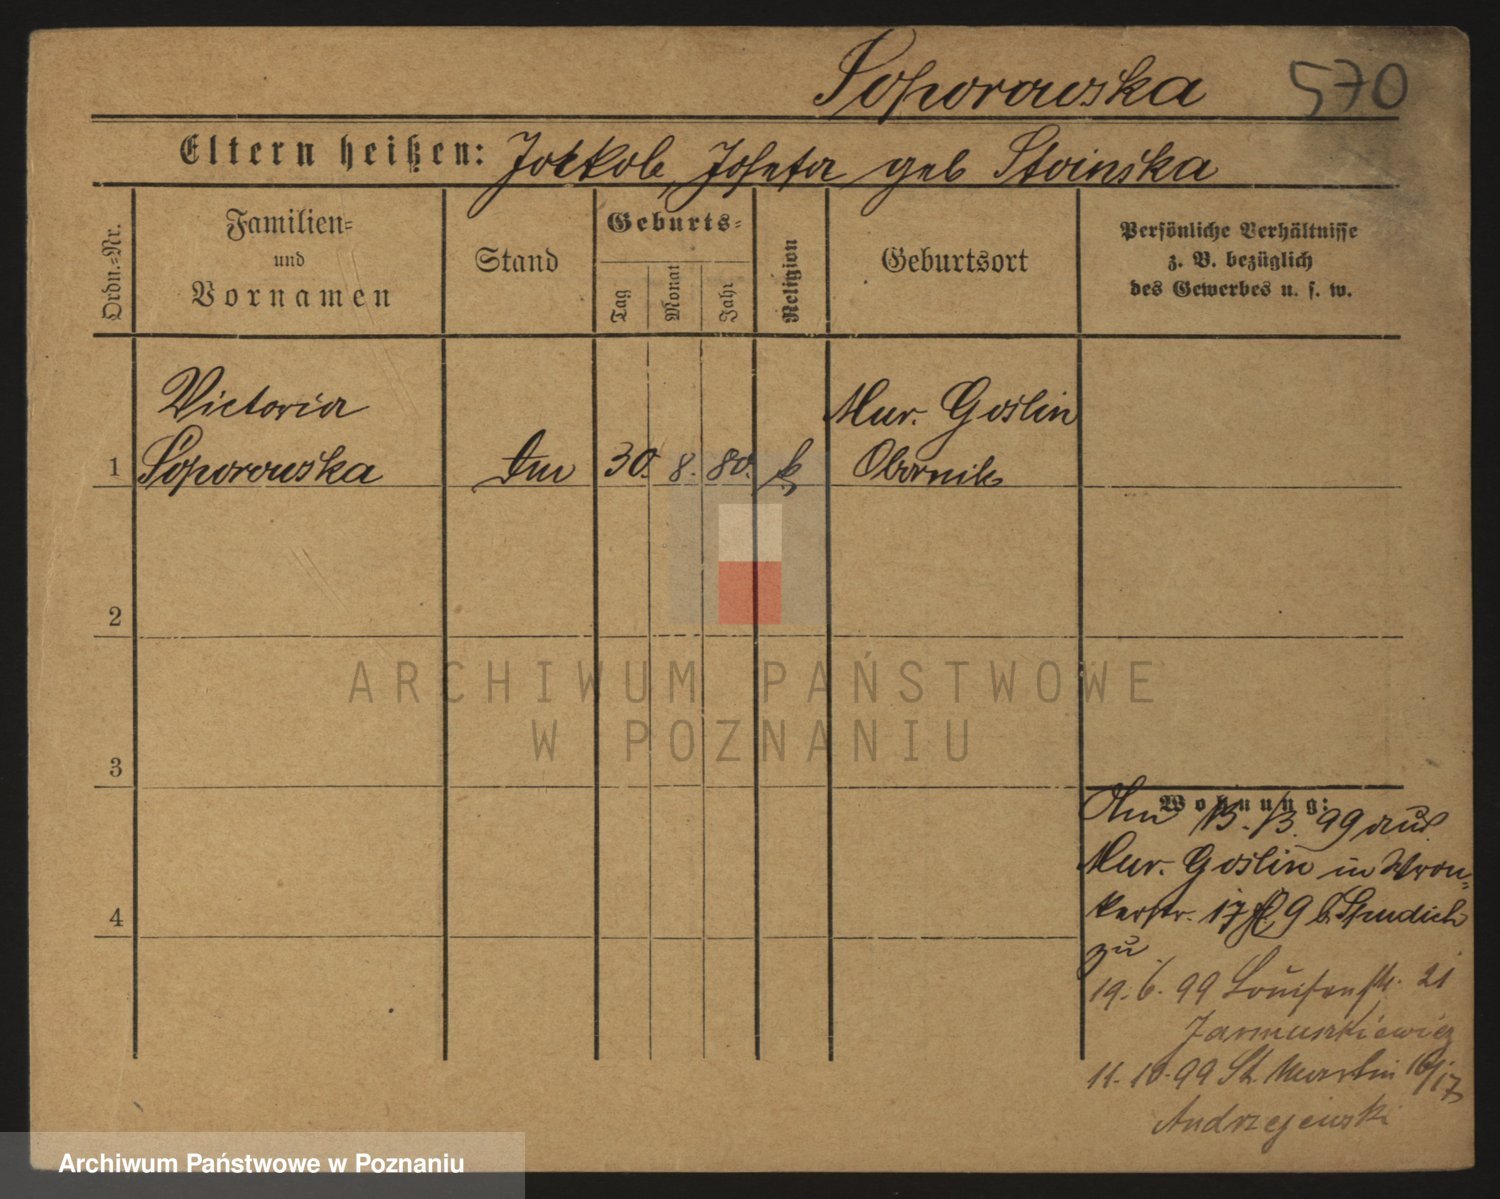 Soporowska 570
Eltern heißen: Jakob, Josefa geb Stoinska
Ordn.-Nr.
Familien-
und
Vornamen
Stand
Geburts-
Tag
Monat
Jahr
Religion
Geburtsort
Persönliche Verhältnisse
z. B. bezüglich
des Gewerbes u. s. w.
Victoria
1 Soporowska
30. 8. 80. k
Mur. Goslin
Obornik
2
3
4
Wohnung:
Am 15./3. 99 aus
Mur. Goslin in Wron-
kerstr. 17 9 b.
zu
19. 6. 99 Louisenstr. 21
Jarmuszkiewicz
11. 10. 99 St. Martin 16/17
Andrzejewski
ARCHIWUM PAŃSTWOWE
W POZNANIU
Archiwum Państwowe w Poznaniu